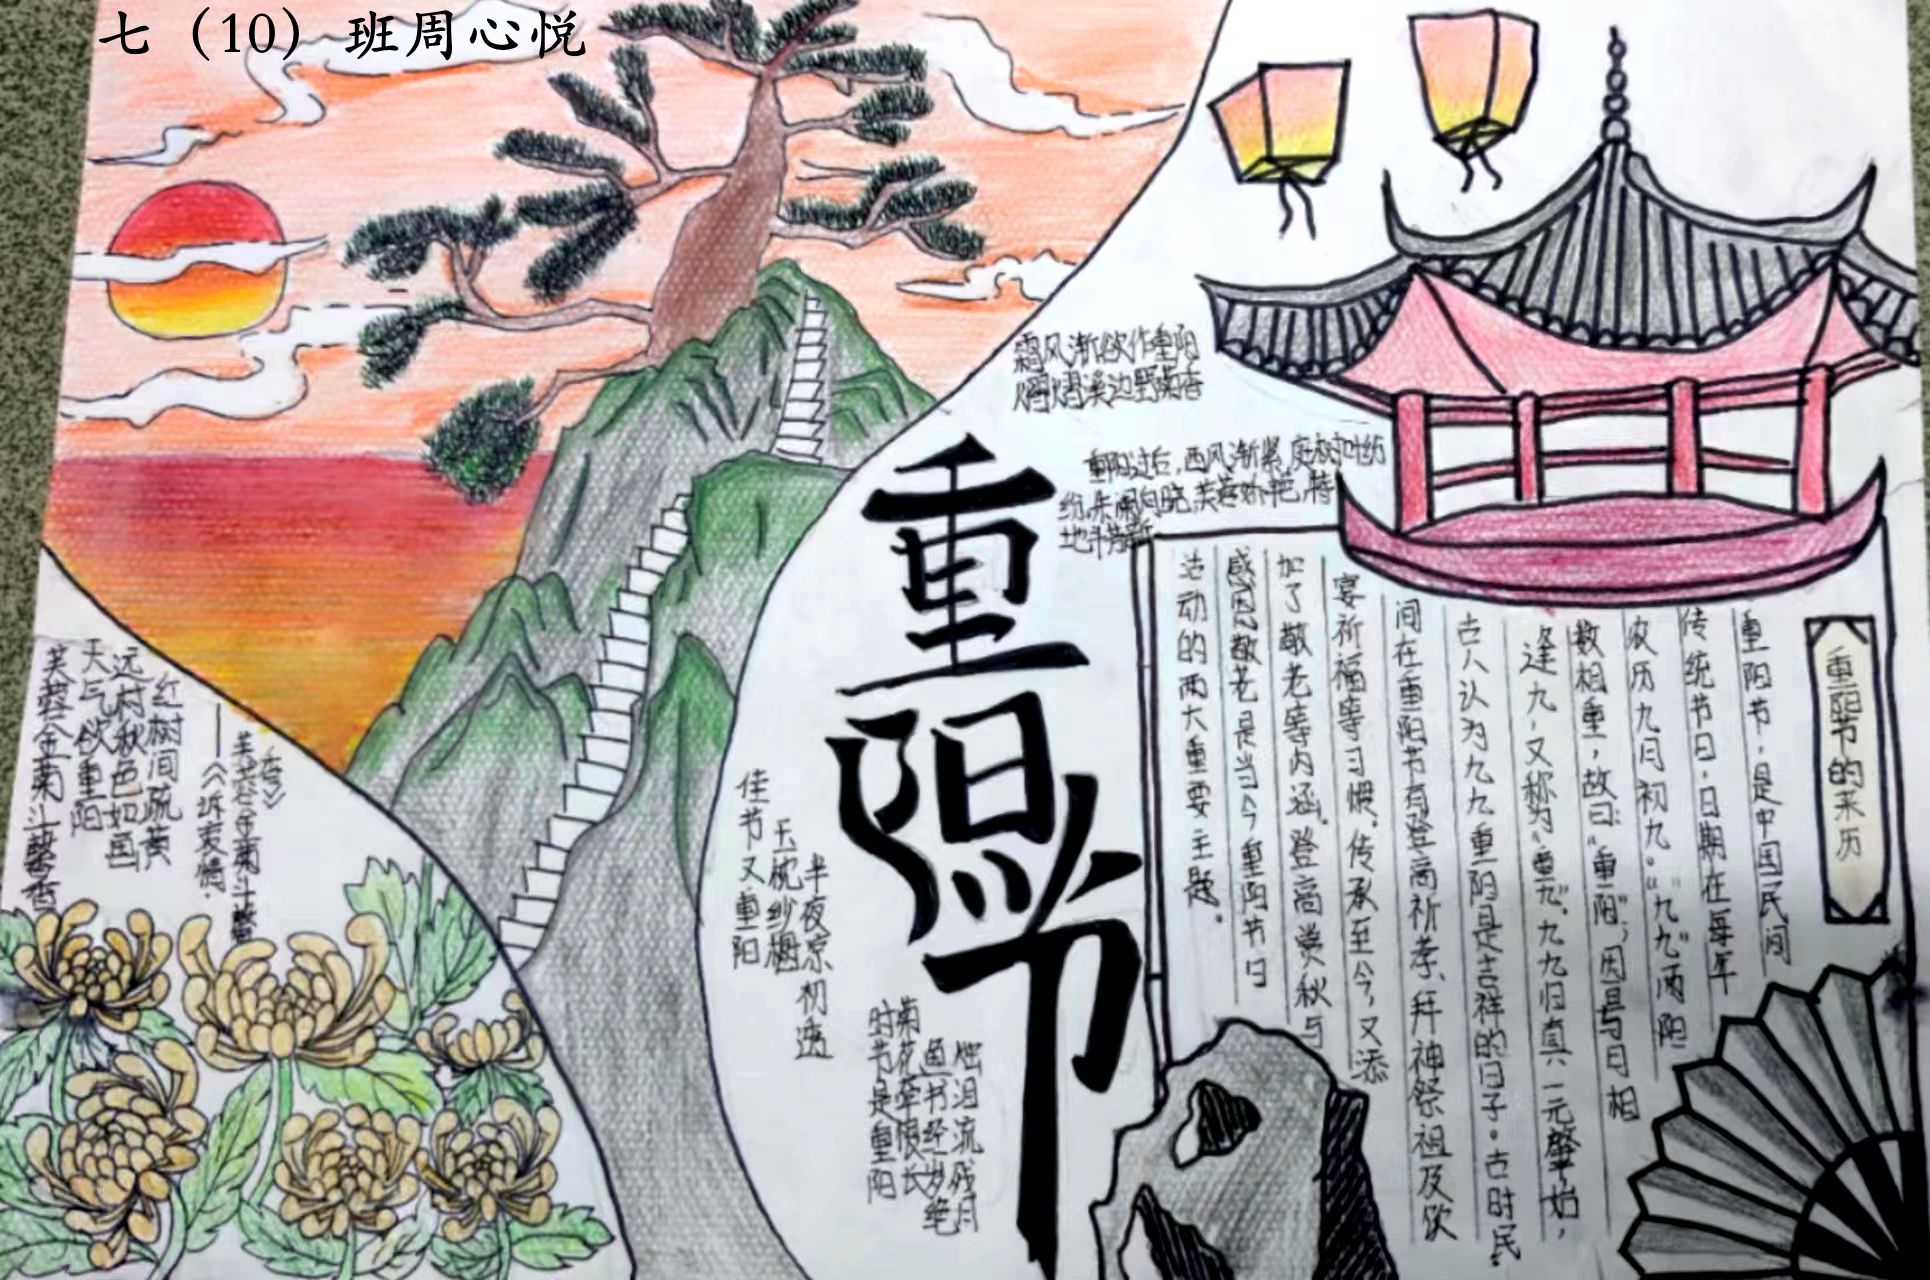 七（10）班周心悦
重阳节
霜风渐欲作重阳
熠熠溪边野菊香
重阳过后，西风渐紧，庭树叶纷
纷，朱阑向晓，芙蓉妖艳，特
地斗芳新
重阳节的来历
重阳节，是中国民间
传统节日，日期在每年
农历九月初九。“九九”两阳
数相重，故曰“重阳”；因是与日相
逢九，又称为“重九”。九九归真，一元肇始，
古人认为九九重阳是吉祥的日子。古时民
间在重阳节有登高祈孝、拜神祭祖及饮
宴祈福等习惯。传承至今，又添
加了敬老等内涵。登高赏秋与
感恩敬老是当今重阳节日
活动的两大重要主题。
芙蓉金菊斗馨香
天气欲重阳
远村秋色如画
红树间疏黄
——《诉衷情·
芙蓉金菊斗馨
香》
佳节又重阳
玉枕纱橱
半夜凉初透
时节是重阳
菊花牵恨长
鱼书经岁绝
烛泪流残月